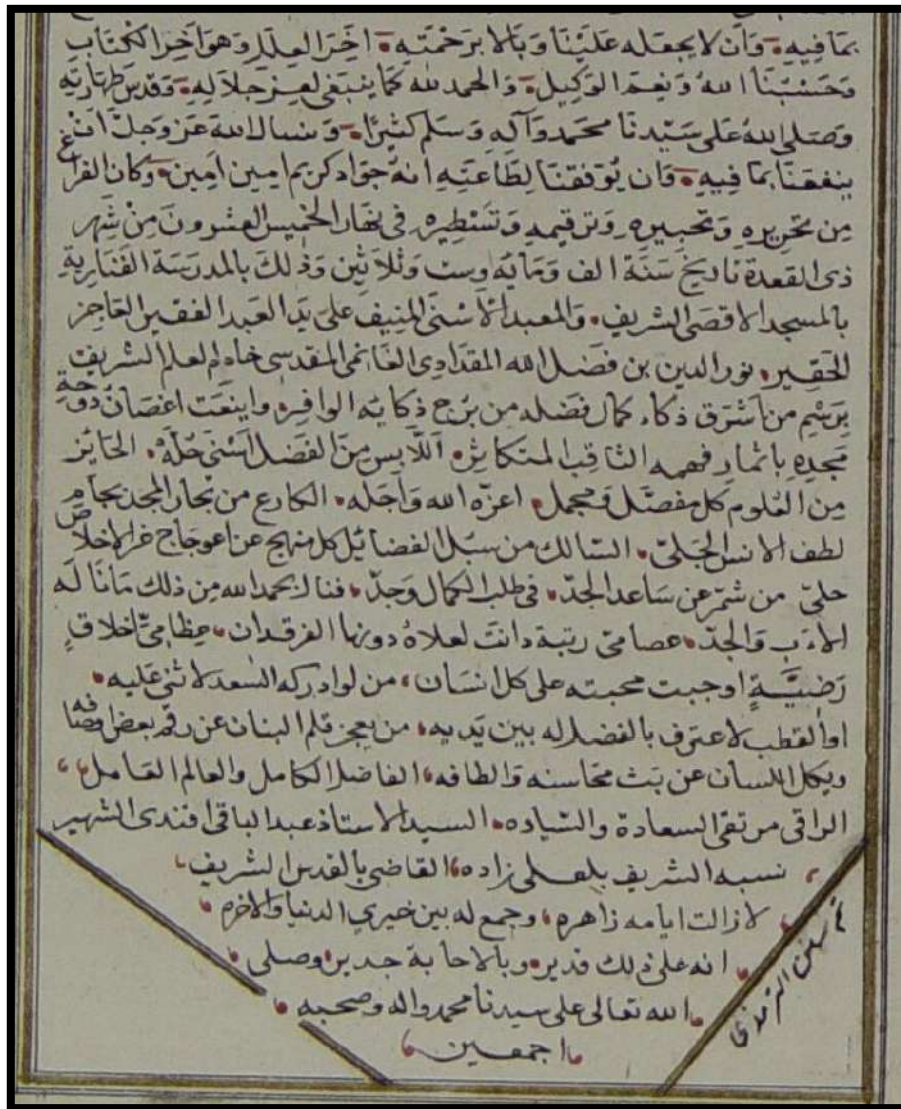 بما فيه وان لا يجعله علينا وبالا برحمته اخر العلل وهو آخر الكتاب
وحسبنا الله ونعم الوكيل والحمد لله كما ينبغي لعز جلاله وقدس طهارته
وصلى الله على سيدنا محمد وآله وسلم كثيرا ونسال الله عز وجل ان
ينفعنا بما فيه وان يوفقنا لطاعته انه جواد كريم امين امين وكان الفراغ
من تحريره وتحبيره وترقيمه وتسطيره في نهار الخميس العشرون من شهر
ذي القعدة تاريخ سنة الف ومايه وست وثلاثين وذلك بالمدرسة الفنارية
بالمسجد الاقصى الشريف والمعبد الاسنى المنيف على يد العبد الفقير العاجز
الحقير نور الدين بن فضل الله المقدادي الغانمي المقدسي خادم العلم الشريف
برسم من اشرق ذكاء كمال فضله من برج ذكايه الوافر واينعت اغصان دوحة
مجده باثمار فهمه الثاقب المتكاثر اللابس من الفضل اسنى حلة الحايز
من العلوم كل مفصل ومجمل اعزه الله واجله الكارع من بحار المجد بجام
لطف الانس الجلي السالك من سبل الفضايل كل منهج عن اعوجاج غر الاخلاص
خلي من شمر عن ساعد الجد في طلب الكمال وجد فنال بحمد الله من ذلك ما ناله
الاب والجد عصامي رتبة دانت لعلاه دونها الفرقدان عظامي اخلاق
رضية اوجبت محبته على كل انسان من لو ادركه السعد لاثنى عليه
او القطب لاعترف بالفضل له بين يديه من يعجز قلم البنان عن رقم بعض اوصافه
ويكل اللسان عن بث محاسنه والطافه الفاضل الكامل والعالم العامل
الراقي مرتقى السعادة والسياده السيد الاستاذ عبد الباقي افندي الشهير
نسبه الشريف بلعلي زاده القاضي بالقدس الشريف
لا زالت ايامه زاهره وجمع له بين خيري الدنيا والاخره
انه على ذلك قدير وبالاجابة جدير وصلى
الله تعالى على سيدنا محمد واله وصحبه
اجمعين
تم سنن الترمذي